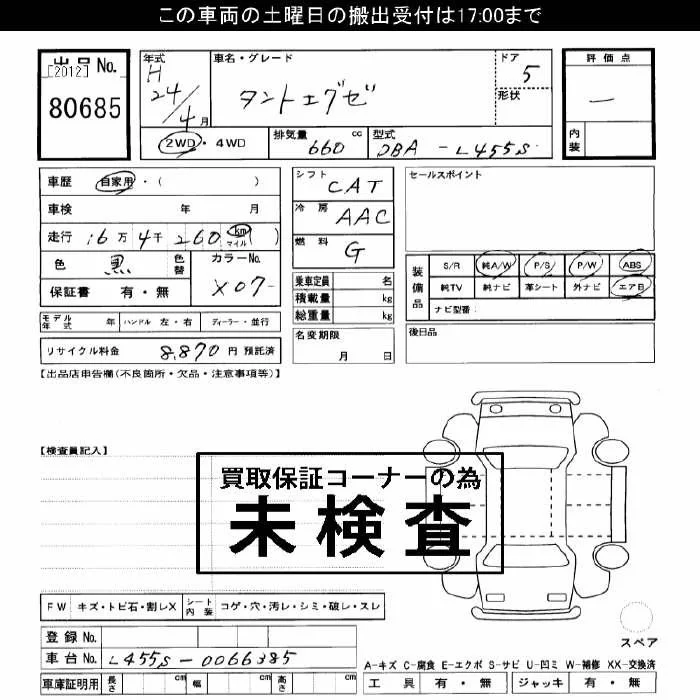 この車両の土曜日の搬出受付は17:00まで
出品 No.
[2012]
80685
年式
H
24/4月
車名・グレード
タントエグゼ
ドア
5
形状
評価点
―
内装
2WD・4WD
排気量 cc
660
型式
DBA-L455S
車歴 自家用・( )
車検 年 月
走行 16万4千260 km マイル ( )
色 黒 色替 カラーNo.
X07-
保証書 有・無
シフト
CAT
冷房
AAC
燃料
G
乗車定員 名
積載量 kg
総重量 kg
名変期限
月 日
セールスポイント
装備品
S/R 純A/W P/S P/W ABS
純TV 純ナビ 革シート 外ナビ エアB
ナビ型番:
後日品
モデル年式 年 ハンドル 左・右 ディーラー・並行
リサイクル料金 8,870 円 預託済
【出品店申告欄(不良箇所・欠品・注意事項等)】
【検査員記入】
買取保証コーナーの為
未検査
FW キズ・トビ石・割レX シート内装 コゲ・穴・汚レ・シミ・破レ・スレ
登録 No.
車台 No. L455S-0066385
車庫証明用 長さ cm 幅 cm 高さ cm
スペア
A-キズ C-腐食 E-エクボ S-サビ U-凹ミ W-補修 XX-交換済
工具 有・無 ジャッキ 有・無